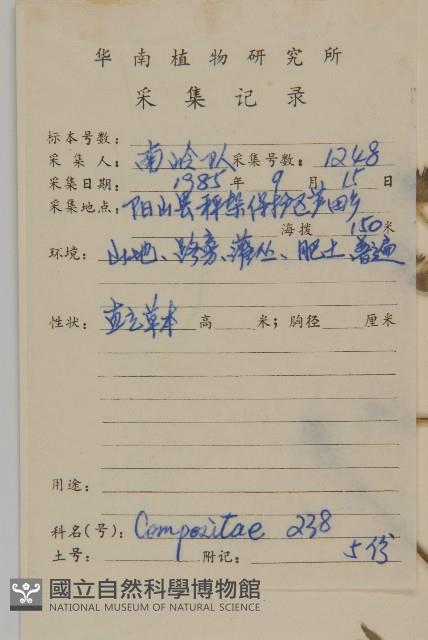 华南植物研究所
采集记录
标本号数:
采集人: 南岭队 采集号数: 1248
采集日期: 1985年9月15日
采集地点: 阳山县秤架保护区芦田乡
海拨 150米
环境: 山地、路旁、灌丛、肥土 普遍
性状: 直立草本 高 米; 胸径 厘米
用途:
科名(号): Compositae 238
土号: 附记: 5份
國立自然科學博物館
NATIONAL MUSEUM OF NATURAL SCIENCE